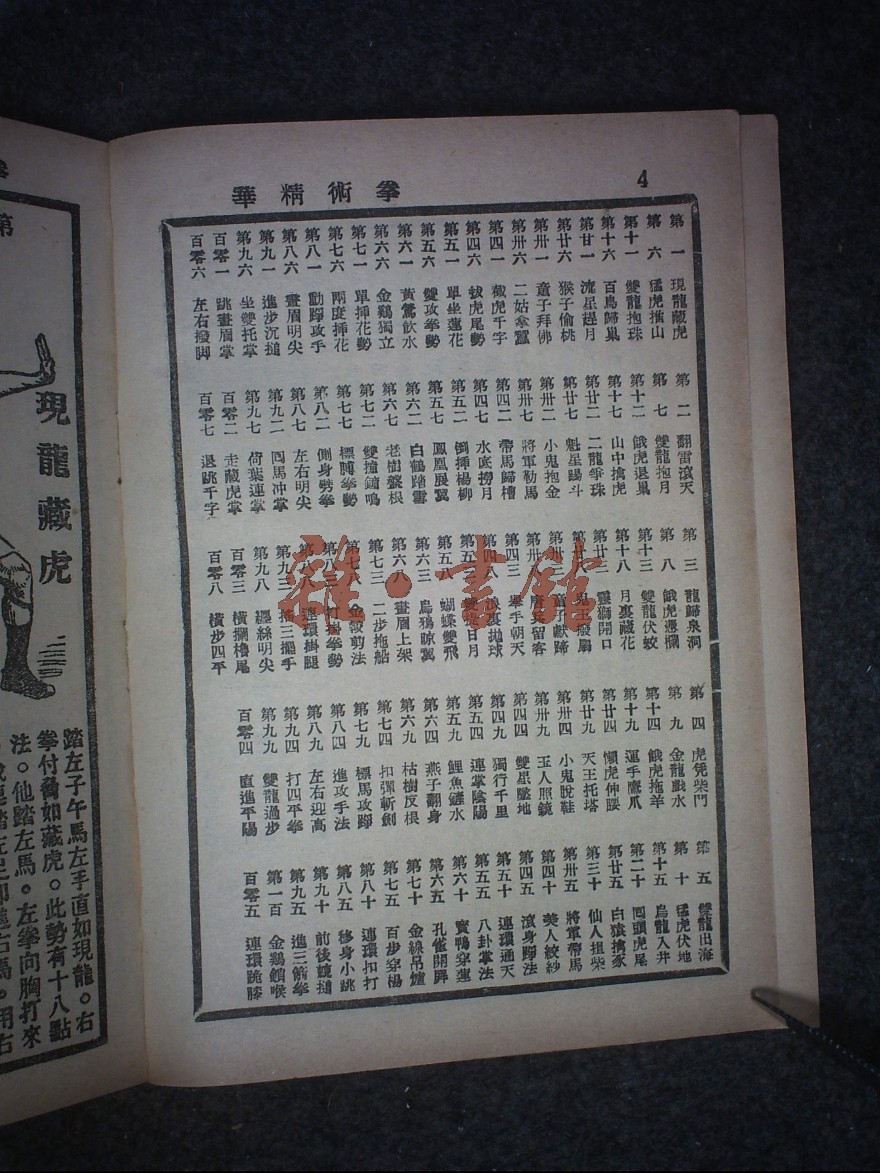 拳術精華
4
第一 現龍藏虎 第二 翻雷滾天 第三 龍歸泉洞 第四 虎兜柴門 第五 雙龍出海
第六 猛虎擋山 第七 雙龍抱月 第八 餓虎憑欄 第九 金龍戲水 第十 猛虎伏地
第十一 雙龍抱珠 第十二 餓虎退巢 第十三 雙龍伏蛟 第十四 餓虎拖羊 第十五 烏龍入井
第十六 百鳥歸巢 第十七 山中擒虎 第十八 月裏藏花 第十九 運手鷹爪 第二十 囘頭虎尾
第廿一 流星趕月 第廿二 二龍爭珠 第廿三 靈獅開口 第廿四 懶虎伸腰 第廿五 白猿擒豕
第廿六 猴子偷桃 第廿七 魁星踢斗 第廿八 鬼王撥扇 第廿九 天王托塔 第三十 仙人担柴
第卅一 童子拜佛 第卅二 小鬼抱金 第卅三 童子獻蹄 第卅四 小鬼脫鞋 第卅五 將軍帶馬
第卅六 二姑拿蠶 第卅七 將軍勒馬 第卅 留客 第卅九 玉人照鏡 第四十 美人絞紗
第四一 截虎千字 第四二 帶馬歸槽 第四三 舉手朝天 第四四 雙星墜地 第四五 滾身踭法
第四六 拔虎尾勢 第四七 水底撈月 第四八 裏拋球 第四九 獨行千里 第五十 連環通天
第五一 單坐蓮花 第五二 倒挿楊柳 第五三 日月 第五四 連掌陰陽 第五五 八卦掌法
第五六 雙攻拳勢 第五七 鳳凰展翼 第五八 蝴蝶雙飛 第五九 鯉魚鑊水 第六十 寶鴨穿蓮
第六一 黃鶯飲水 第六二 白鶴踏雪 第六三 烏鴉晾翼 第六四 燕子翻身 第六五 孔雀開屛
第六六 金鷄獨立 第六七 老樹盤根 第六八 畫眉上架 第六九 枯樹反根 第七十 金線吊爐
第七一 單挿花勢 第七二 雙撞鐘鳴 第七三 二步拖船 第七四 扣彈斬劍 第七五 百步穿楊
第七六 兩度挿花 第七七 標膊拳勢 第七八 金鉸剪法 第七九 標馬攻踭 第八十 連環扣打
第八一 動踭攻手 第八二 側身劈拳 第八三 掛拳勢 第八四 進攻手法 第八五 移身小跳
第八六 畫眉明尖 第八七 左右明尖 第八八 連環掛腿 第八九 左右迎高 第九十 前後鏡搥
第九一 進步沉搥 第九二 囘馬冲掌 第九三 搖三擺手 第九四 打四平拳 第九五 進三箭拳
第九六 坐雙托掌 第九七 荷葉連掌 第九八 纒絲明尖 第九九 雙龍過步 第一百 金鷄鎖喉
百零一 跳畫眉掌 百零二 走藏虎掌 百零三 橫攔櫓尾 百零四 直進平陽 百零五 連環跪膝
百零六 左右撥脚 百零七 退跳千字 百零八 橫步四平
雜·書館
第
現龍藏虎
踏左子午馬左手直如現龍。右
拳付脅如藏虎。此勢有十八點
法。他踏左馬。左拳向胸打來